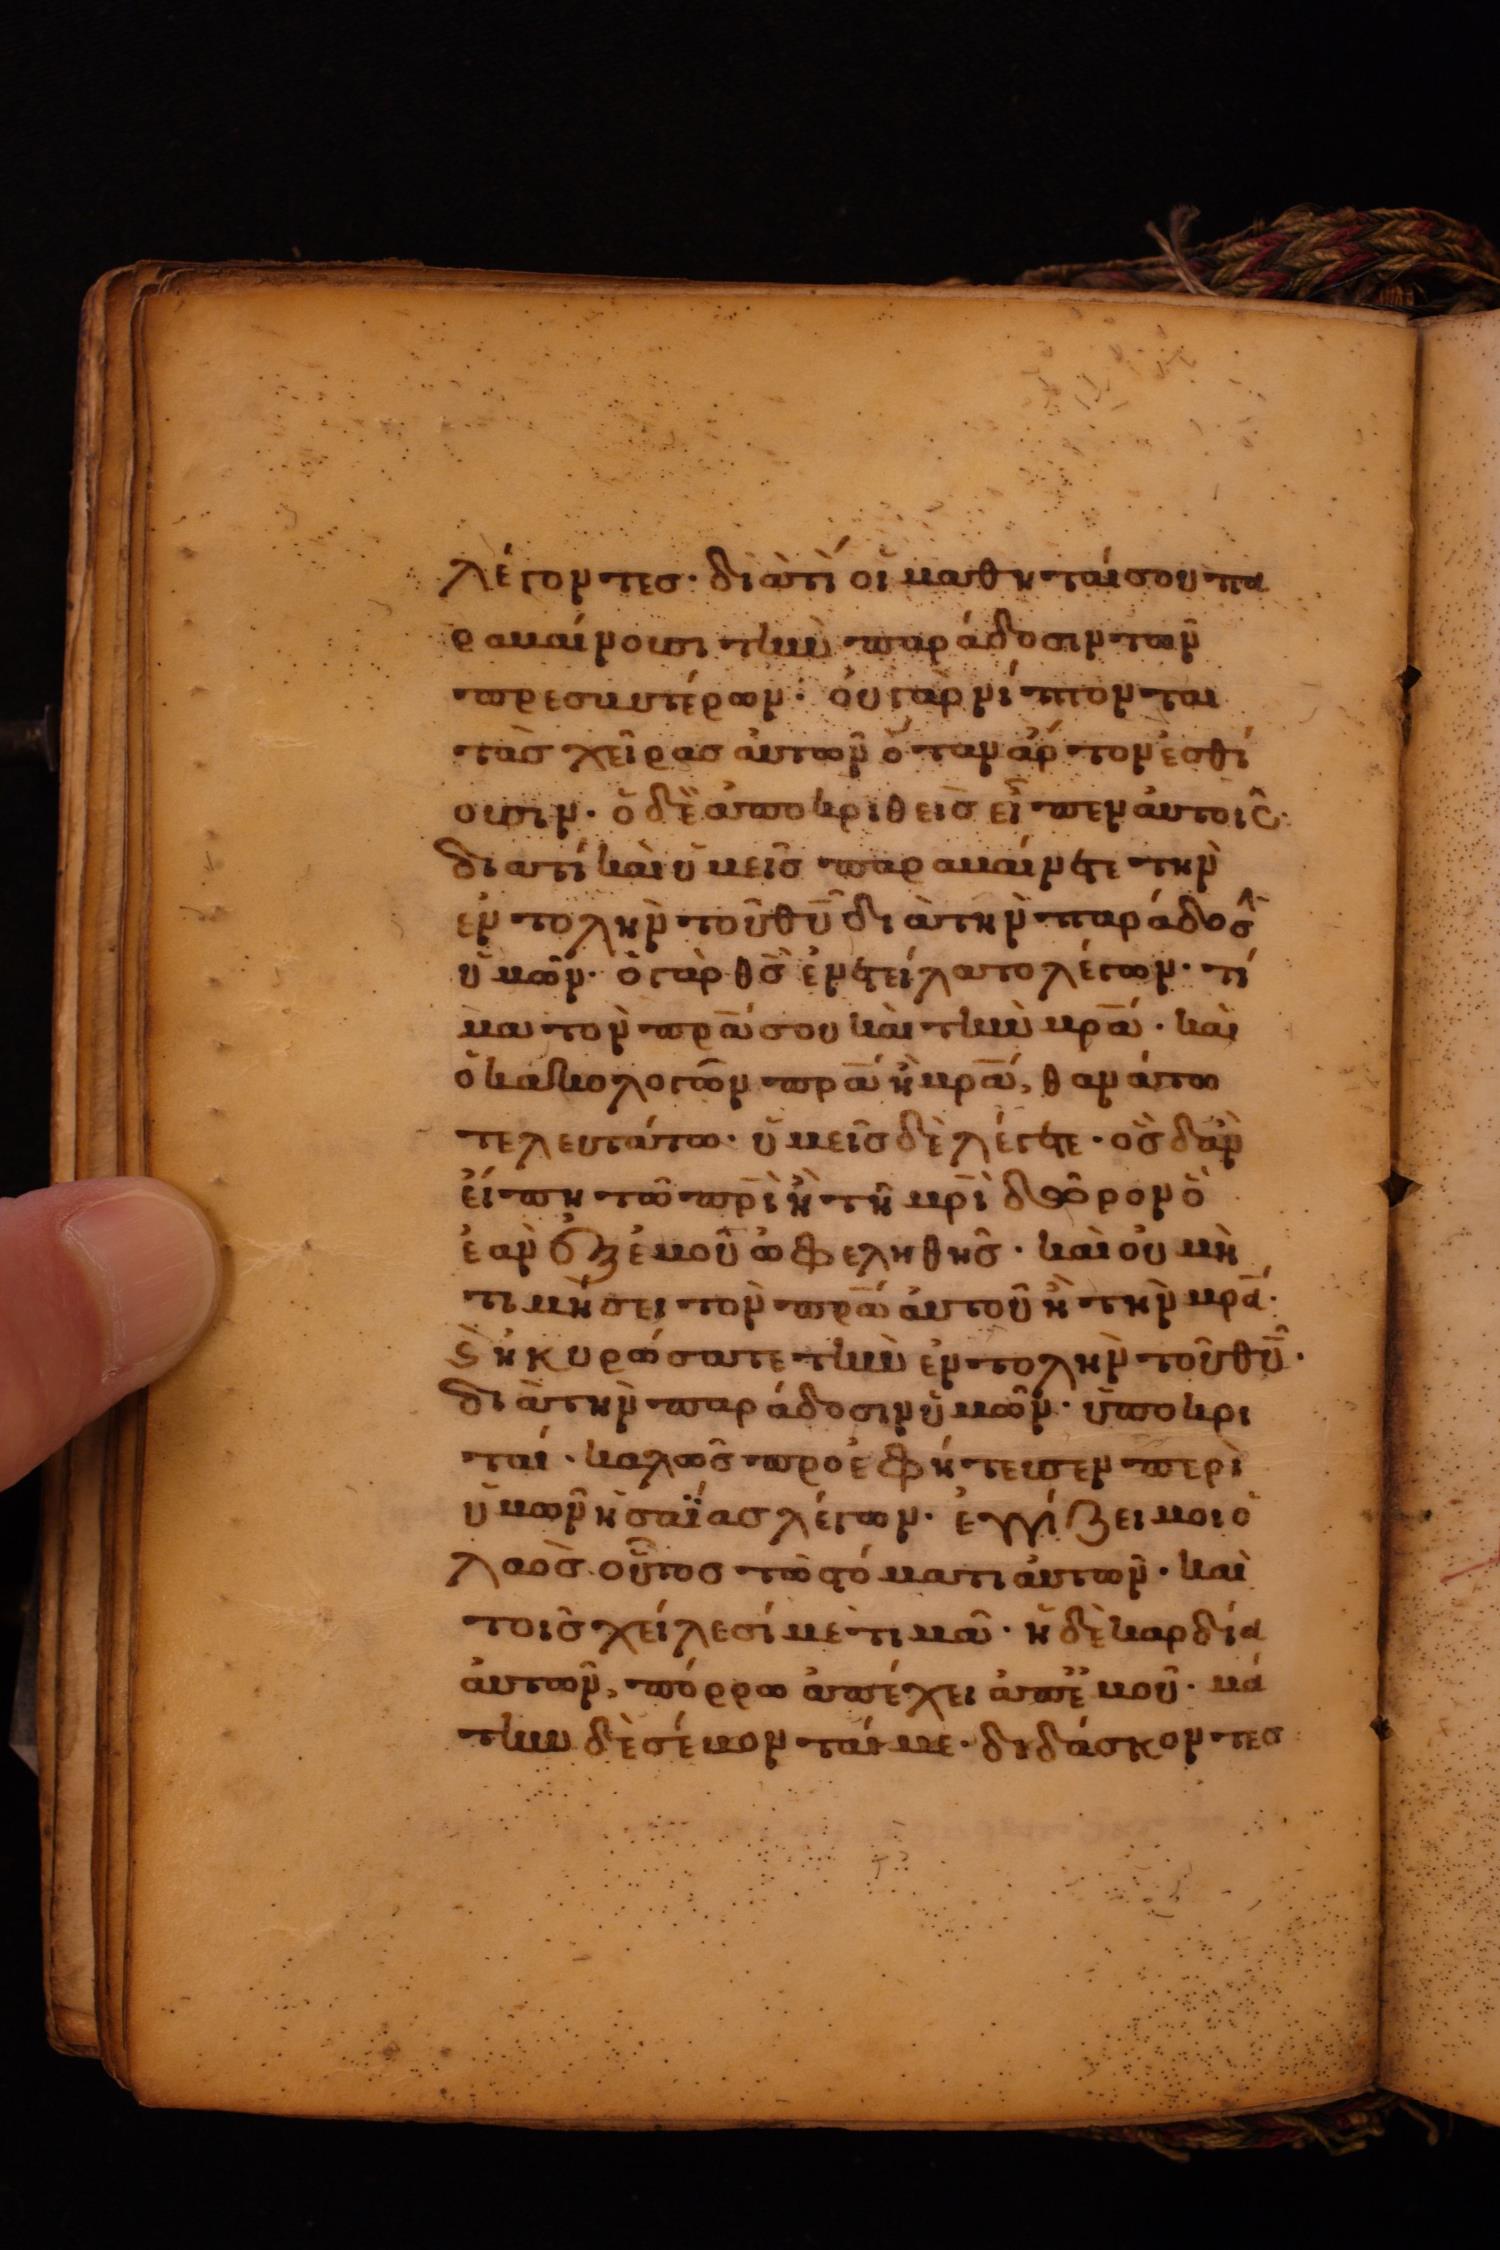 λέγοντεσ· διὰτί οἱ μαθηταί σου πα
ραβαίνουσι τὴν παράδοσιν τῶν
πρεσβυτέρων· οὐ γὰρ νίπτονται
τὰσ χεῖρασ αὐτῶν ὅταν ἄρτον ἐσθί
ουσιν· ὁ δὲ ἀποκριθεὶσ εἶπεν αὐτοῖς·
διατί καὶ ὑμεῖσ παραβαίνετε τὴν
ἐντολὴν τοῦ θ̅υ̅ διὰ τὴν παράδοσ
ὑμῶν· ὁ γὰρ θ̅σ̅ ἐνετείλατο λέγων· τί
μα τὸν π̅ρ̅α̅ σου καὶ τὴν μ̅ρ̅α̅· καὶ
ὁ κακολογῶν π̅ρ̅α̅ ἢ μ̅ρ̅α̅, θανάτω
τελευτάτω· ὑμεῖσ δὲ λέγετε· ὃσ δἂν
εἴπη τῶ π̅ρ̅ι̅ ἢ τῆ μ̅ρ̅ι̅ δῶρον ὃ
ἐὰν ἐξ ἐμοῦ ὠφεληθῆσ· καὶ οὐ μὴ
τιμήσει τὸν π̅ρ̅α̅ αὐτοῦ ἢ τὴν μ̅ρ̅α̅·
ϗ ἠκυρώσατε τὴν ἐντολὴν τοῦ θ̅υ̅·
διὰ τὴν παράδοσιν ὑμῶν· ὑποκρι
ταί· καλῶσ προεφήτευσεν περὶ
ὑμῶν ἡσαΐασ λέγων· ἐγγίζει μοι ὁ
λαὸσ οὗτοσ τῶ στόματι αὐτῶν· καὶ
τοῖσ χείλεσί με τιμᾶ· ἡ δὲ καρδία
αὐτῶν, πόρρω ἀπέχει ἀπ' ἐμοῦ· μά
την δὲ σέβονταί με· διδάσκοντεσ